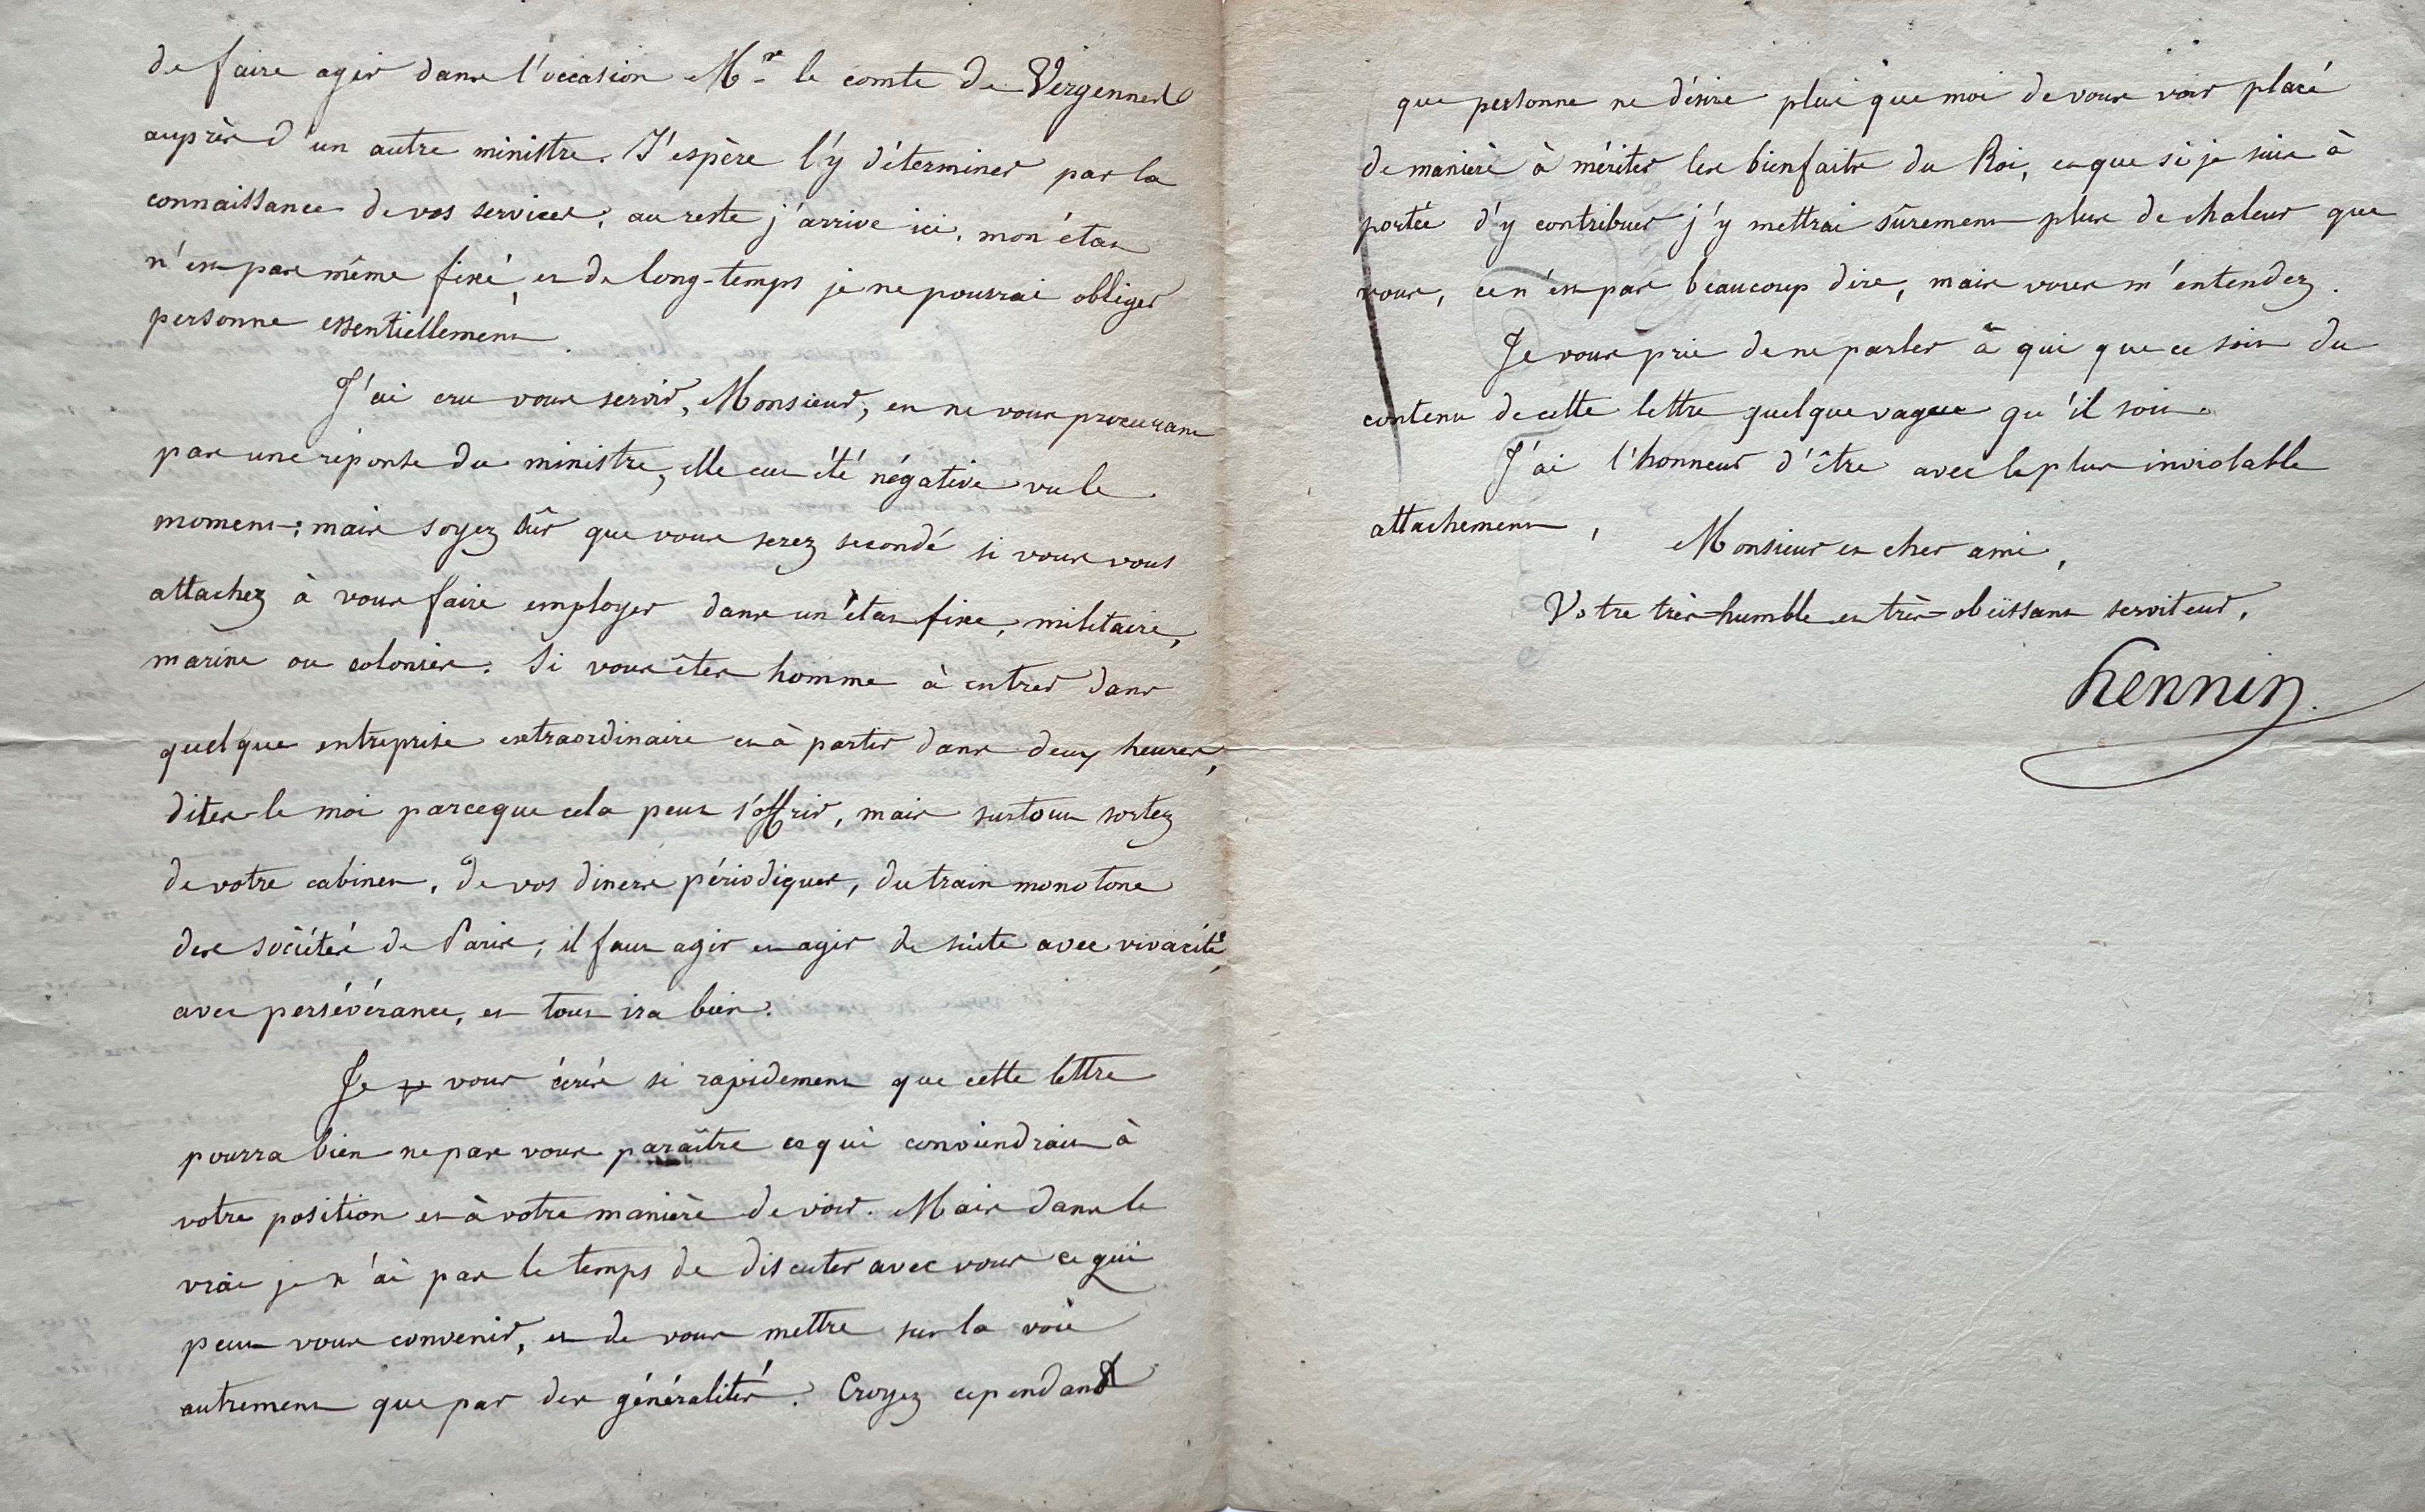 de faire agir dans l'occasion Mr le comte de Vergennes
auprès d'un autre ministre. J'espère l'y déterminer par la
connaissance de vos services; au reste j'arrive ici, mon état
n'est pas même fixé, et de long-temps je ne pourrai obliger
personne essentiellement.
J'ai cru vous servir, Monsieur, en ne vous procurant
pas une réponse du ministre, elle eut été négative vu le
moment; mais soyez sûr que vous serez secondé si vous vous
attachez à vous faire employer dans un état fixe, militaire,
marine ou colonies. Si vous êtes homme à entrer dans
quelque entreprise extraordinaire et à partir dans deux heures,
dites-le moi parceque cela peut s'offrir, mais surtout sortez
de votre cabinet, de vos diners périodiques, du train monotone
des sociétés de Paris; il faut agir et agir de suite avec vivacité,
avec persévérance, et tout ira bien.
Je vous écris si rapidement que cette lettre
pourra bien ne pas vous paraître ce qui conviendrait à
votre position et à votre manière de voir. Mais dans le
vrai je n'ai pas le temps de discuter avec vous ce qui
peut vous convenir, et de vous mettre sur la voie
autrement que par des généralités. Croyez cependant
que personne ne désire plus que moi de vous voir placé
de manière à mériter les bienfaits du Roi, et que si je suis à
portée d'y contribuer j'y mettrai sûrement plus de chaleur que
vous, ce n'est pas beaucoup dire, mais vous m'entendez.
Je vous prie de ne parler à qui que ce soit du
contenu de cette lettre quelque vague qu'il soit.
J'ai l'honneur d'être avec le plus inviolable
attachement,
Monsieur et cher ami,
Votre très-humble et très-obéissant serviteur,
hennin.